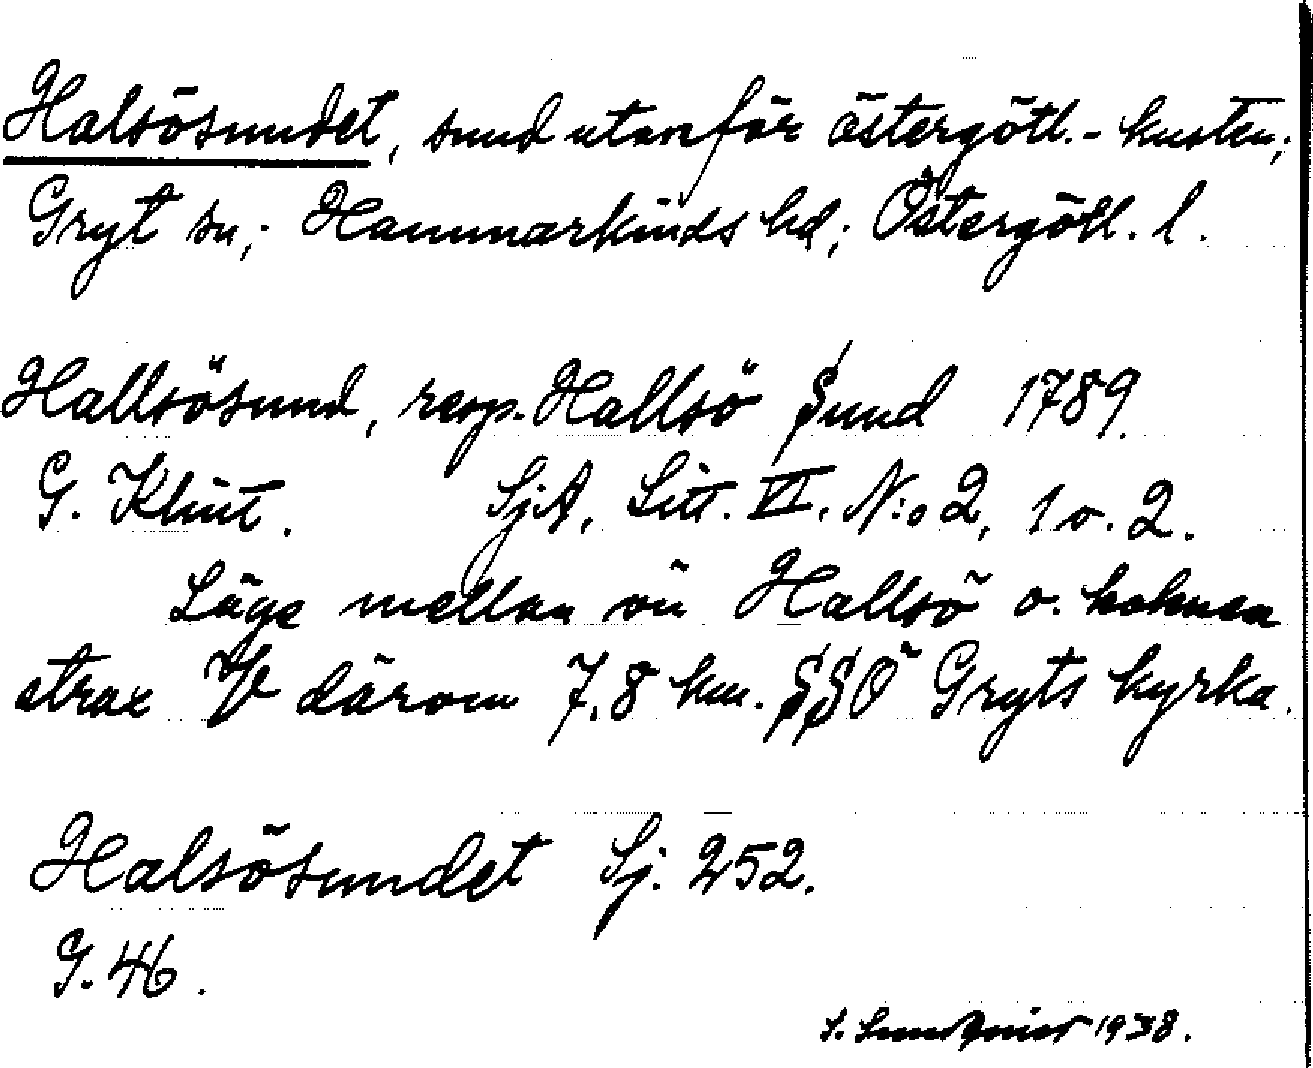 Halsösundet, sund utanför östergötl.- kusten;
Gryt sn; Hammarkinds hd; Östergötl. l.
Hallsösund, resp. Hallsö Sund 1789.
G. Klint. SjA, Litt. VI. N:o 2, 1 o. 2.
Läge mellan ön Hallsö o. holmen
strax V därom 7,8 km. SSO Gryts kyrka.
Halsösundet Sj. 252.
G. 46.
1938.